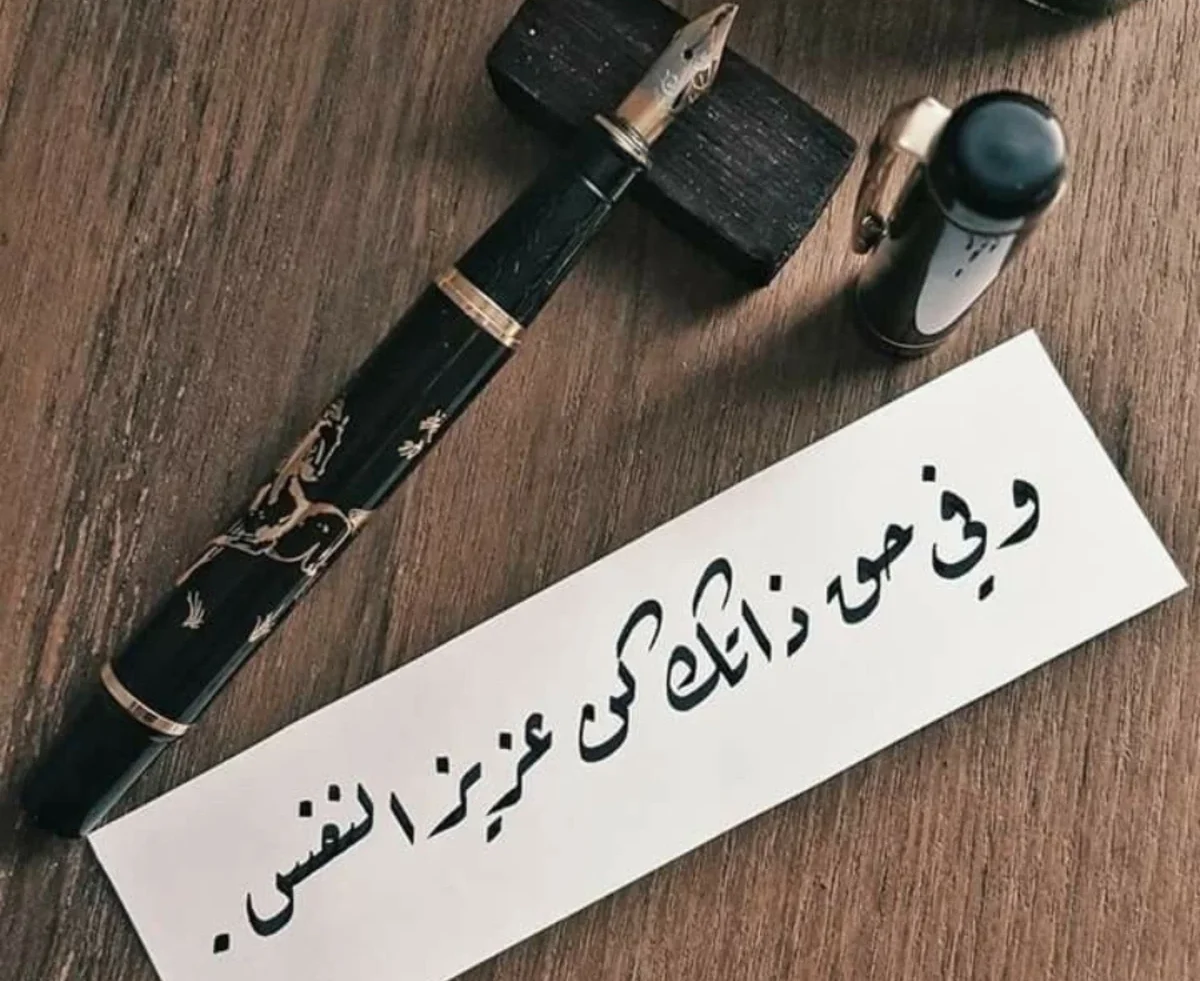 وفي حق ذاتك كن عزيز النفس.